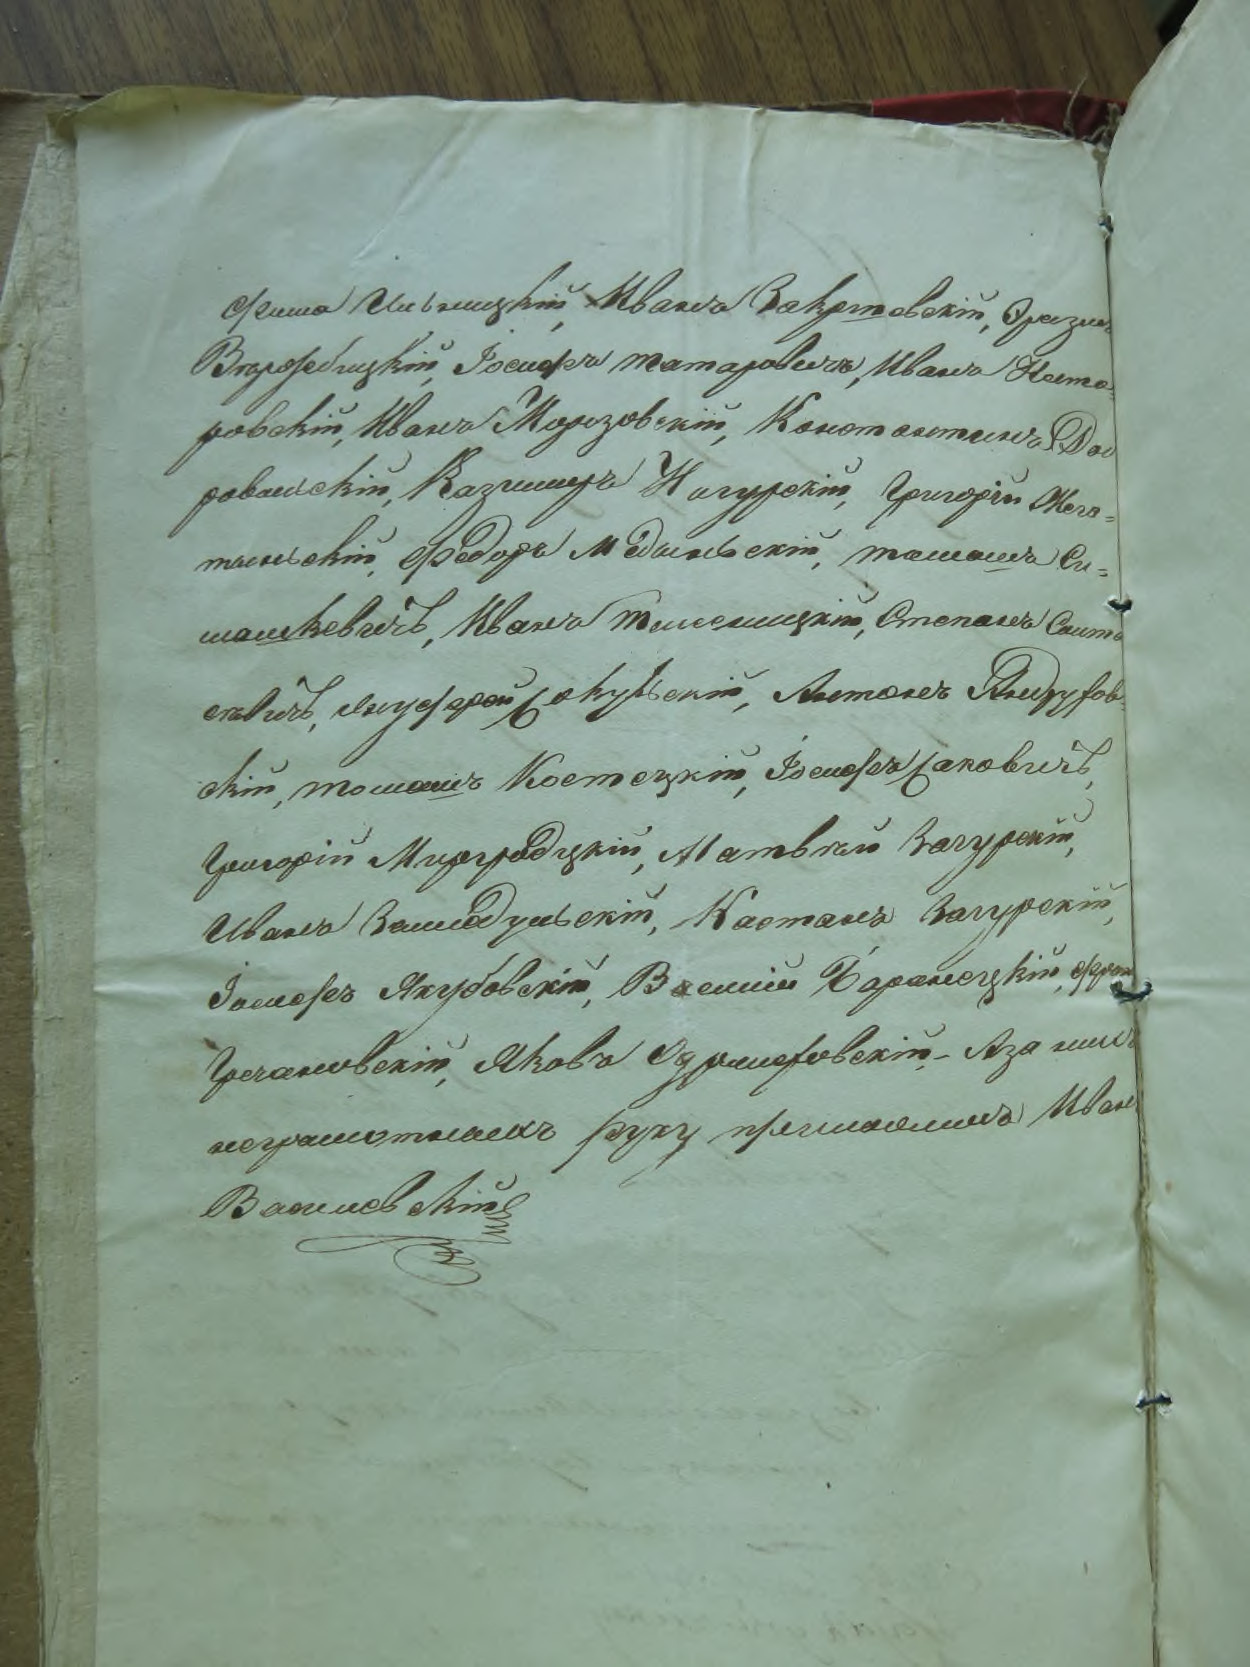 Фома Ильницкій, Иванъ Закртовскій, Эразмъ
Вержбицкій, Іосифъ татаровичъ, Иванъ
ровскій, Иванъ Морозовскій, Константинъ
рованскій, Казимиръ Нагурскій, Григорій Жего=
тинскій, Федоръ Мдынскій, томашъ Си=
машкевичъ, Иванъ Тысеницкій, Степанъ Сонт
кевичъ, Онуфрей Сокульскій, Антонъ Яндружов-
скій, томашъ Костецкій, Іосифъ Саковичъ,
Григорій Миргродцкій, Матвѣй Загурскій,
Иванъ Замлодульскій, Каетанъ Загурскій,
Іосифъ Якубовскій, Василій Баранецкій, Фран
Гречановскій, Яковъ - А за нихъ
неграмотныхъ руку приложилъ Иванъ
Василевскій